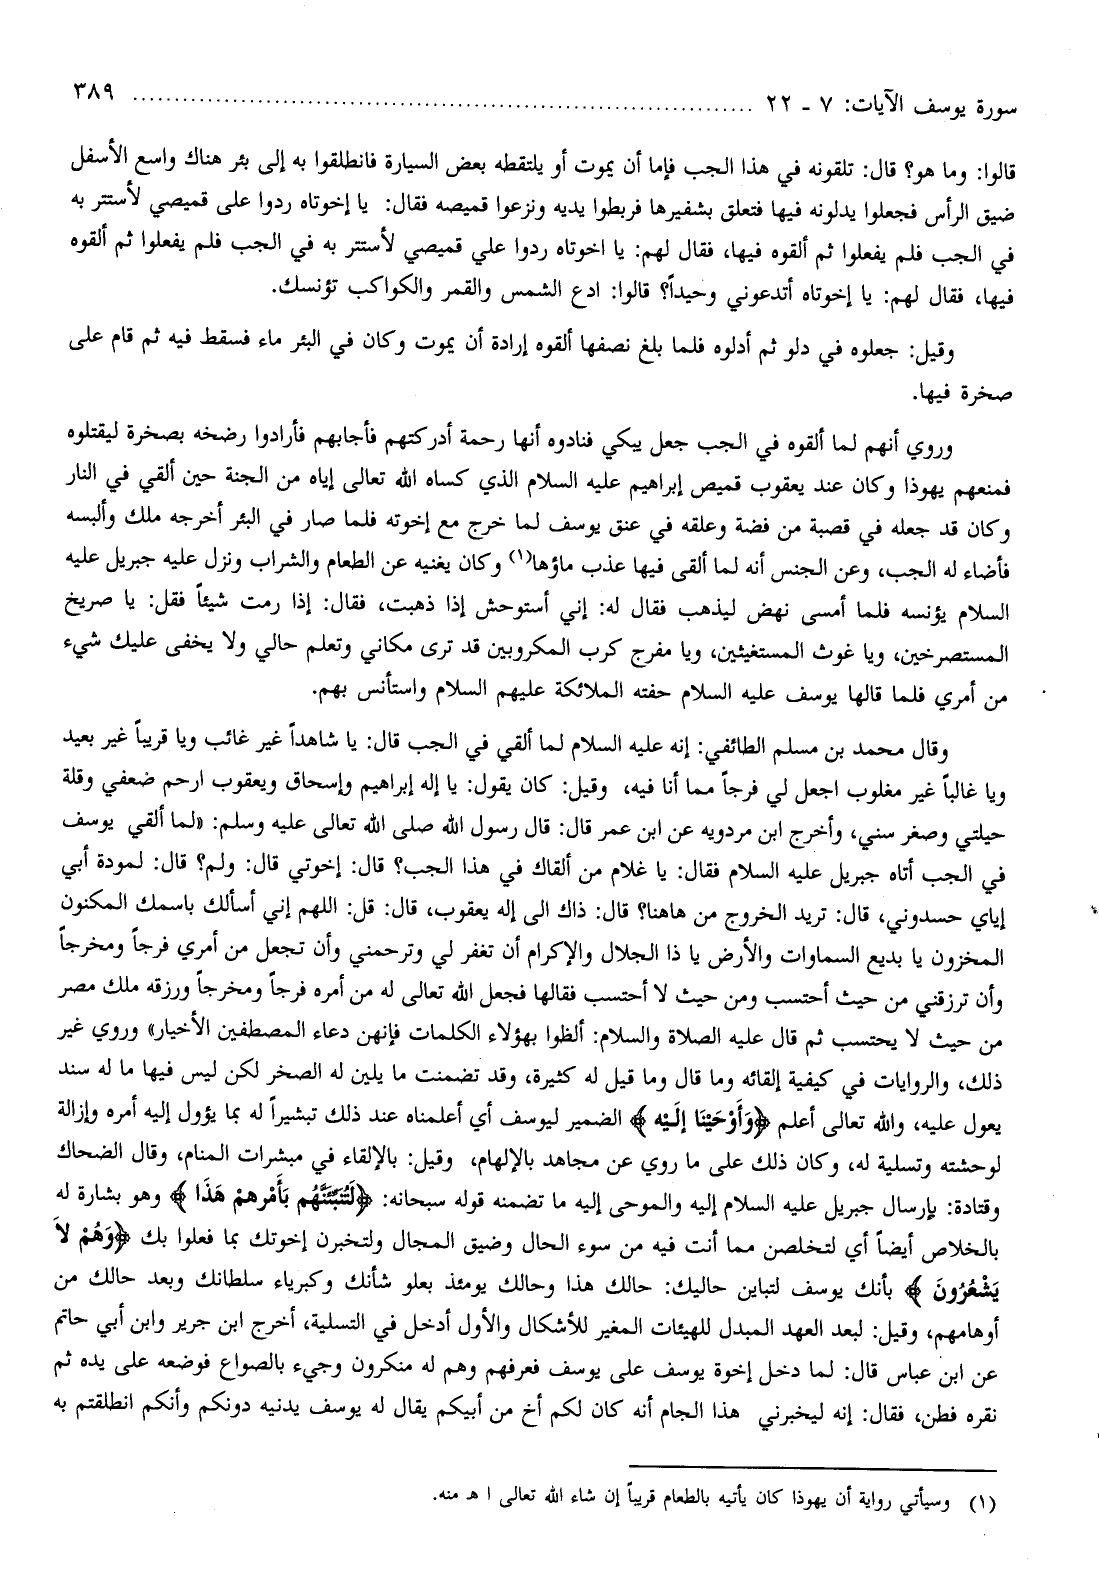 سورة يوسف الآيات: ٧ ـ ٢٢ ........................................................................ ٣٨٩
قالوا: وما هو؟ قال: تلقونه في هذا الجب فإما أن يموت أو يلتقطه بعض السيارة فانطلقوا به إلى بئر هناك واسع الأسفل
ضيق الرأس فجعلوا يدلونه فيها فتعلق بشفيرها فربطوا يديه ونزعوا قميصه فقال: يا إخوتاه ردوا على قميصي لأستتر به
في الجب فلم يفعلوا ثم ألقوه فيها، فقال لهم: يا اخوتاه ردوا علي قميصي لأستتر به في الجب فلم يفعلوا ثم ألقوه
فيها، فقال لهم: يا إخوتاه أتدعوني وحيداً؟ قالوا: ادع الشمس والقمر والكواكب تؤنسك.
وقيل: جعلوه في دلو ثم أدلوه فلما بلغ نصفها ألقوه إرادة أن يموت وكان في البئر ماء فسقط فيه ثم قام على
صخرة فيها.
وروي أنهم لما ألقوه في الجب جعل يبكي فنادوه أنها رحمة أدركتهم فأجابهم فأرادوا رضخه بصخرة ليقتلوه
فمنعهم يهوذا وكان عند يعقوب قميص إبراهيم عليه السلام الذي كساه الله تعالى إياه من الجنة حين ألقي في النار
وكان قد جعله في قصبة من فضة وعلقه في عنق يوسف لما خرج مع إخوته فلما صار في البئر أخرجه ملك وألبسه
فأضاء له الجب، وعن الجنس أنه لما ألقى فيها عذب ماؤها(١) وكان يغنيه عن الطعام والشراب ونزل عليه جبريل عليه
السلام يؤنسه فلما أمسى نهض ليذهب فقال له: إني أستوحش إذا ذهبت، فقال: إذا رمت شيئاً فقل: يا صريخ
المستصرخين، ويا غوث المستغيثين، ويا مفرج كرب المكروبين قد ترى مكاني وتعلم حالي ولا يخفى عليك شيء
من أمري فلما قالها يوسف عليه السلام حفته الملائكة عليهم السلام واستأنس بهم.
وقال محمد بن مسلم الطائفي: إنه عليه السلام لما ألقي في الجب قال: يا شاهداً غير غائب ويا قريباً غير بعيد
ويا غالباً غير مغلوب اجعل لي فرجاً مما أنا فيه، وقيل: كان يقول: يا إله إبراهيم وإسحاق ويعقوب ارحم ضعفي وقلة
حيلتي وصغر سني، وأخرج ابن مردويه عن ابن عمر قال: قال رسول الله صلى الله تعالى عليه وسلم: «لما ألقي يوسف
في الجب أتاه جبريل عليه السلام فقال: يا غلام من ألقاك في هذا الجب؟ قال: إخوتي قال: ولم؟ قال: لمودة أبي
إياي حسدوني، قال: تريد الخروج من هاهنا؟ قال: ذاك الى إله يعقوب، قال: قل: اللهم إني أسألك باسمك المكنون
المخزون يا بديع السماوات والأرض يا ذا الجلال والإكرام أن تغفر لي وترحمني وأن تجعل من أمري فرجاً ومخرجاً
وأن ترزقني من حيث أحتسب ومن حيث لا أحتسب فقالها فجعل الله تعالى له من أمره فرجاً ومخرجاً ورزقه ملك مصر
من حيث لا يحتسب ثم قال عليه الصلاة والسلام: ألظوا بهؤلاء الكلمات فإنهن دعاء المصطفين الأخيار» وروي غير
ذلك، والروايات في كيفية إلقائه وما قال وما قيل له كثيرة، وقد تضمنت ما يلين له الصخر لكن ليس فيها ما له سند
يعول عليه، والله تعالى أعلم ﴿وَأَوْحَيْنَا إِلَيْه ﴾ الضمير ليوسف أي أعلمناه عند ذلك تبشيراً له بما يؤول إليه أمره وإزالة
لوحشته وتسلية له، وكان ذلك على ما روي عن مجاهد بالإلهام، وقيل: بالإلقاء في مبشرات المنام، وقال الضحاك
وقتادة: بإرسال جبريل عليه السلام إليه والموحى إليه ما تضمنه قوله سبحانه: ﴿لَتُنَبِّئَنَّهُم بَأَمْرهمْ هَذَا ﴾ وهو بشارة له
بالخلاص أيضاً أي لتخلصن مما أنت فيه من سوء الحال وضيق المجال ولتخبرن إخوتك بما فعلوا بك ﴿وَهُمْ لاَ
يَشْعُرُونَ ﴾ بأنك يوسف لتباين حاليك: حالك هذا وحالك يومئذ بعلو شأنك وكبرياء سلطانك وبعد حالك من
أوهامهم، وقيل: لبعد العهد المبدل للهيئات المغير للأشكال والأول أدخل في التسلية، أخرج ابن جرير وابن أبي حاتم
عن ابن عباس قال: لما دخل إخوة يوسف على يوسف فعرفهم وهم له منكرون وجيء بالصواع فوضعه على يده ثم
نقره فطن، فقال: إنه ليخبرني هذا الجام أنه كان لكم أخ من أبيكم يقال له يوسف يدنيه دونكم وأنكم انطلقتم به
(١) وسيأتي رواية أن يهوذا كان يأتيه بالطعام قريباً إن شاء الله تعالى ا هـ منه.